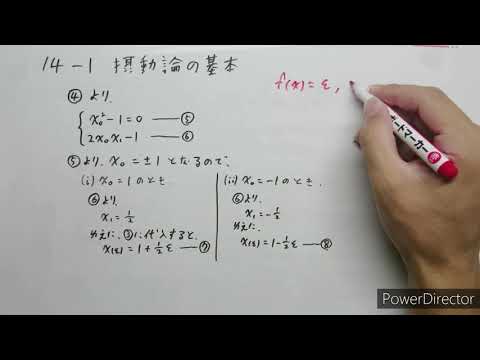 14-1 摂動論の基本
④より、
x₀²-1=0 ―⑤
2x₀x₁-1 ―⑥
⑤より、x₀=±1となるので、
(i) x₀=1のとき、
⑥より、
x₁=1/2
ゆえに、③に代入すると、
x(ε)=1+1/2 ε ―⑦
(ii) x₀=-1のとき、
⑥より、
x₁=-1/2
ゆえに、
x(ε)=-1-1/2 ε ―⑧
f(x)=ε,
ボードマーカー
PowerDirector